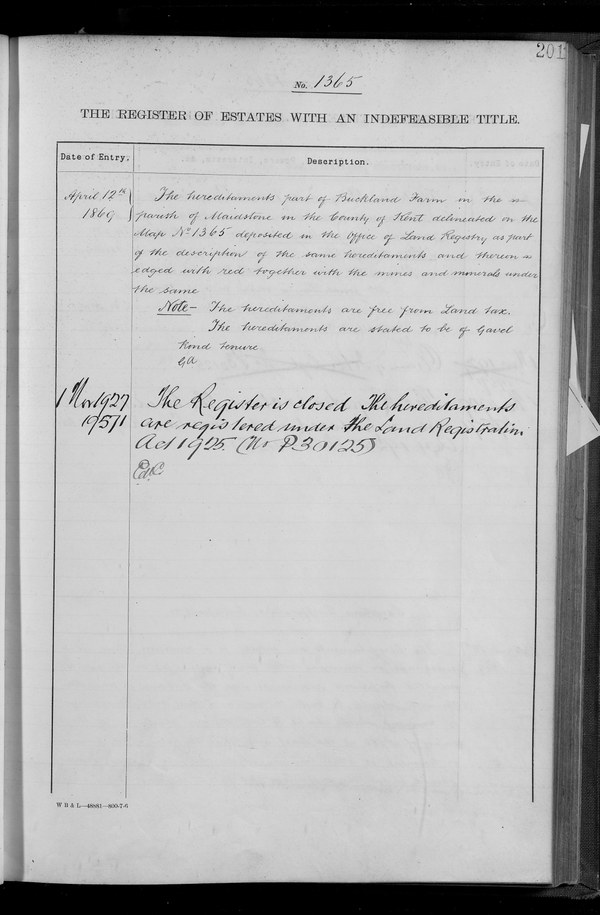 201
No. 1365
THE REGISTER OF ESTATES WITH AN INDEFEASIBLE TITLE.
Date of Entry.
Description.
April 12th
1869
The hereditaments part of Buckland Farm in the
parish of Maidstone in the County of Kent delineated on the
Map No 1365 deposited in the Office of Land Registry as part
of the description of the same hereditaments and therein
edged with red together with the mines and minerals under
the same
Note - The hereditaments are free from Land tax.
The hereditaments are stated to be of Gavel
Kind tenure
GA
1 Nov 1927
The Register is closed The hereditaments
are registered under the Land Registration
Act 1925. (No P30125)
W B & L—48881—800-7-6